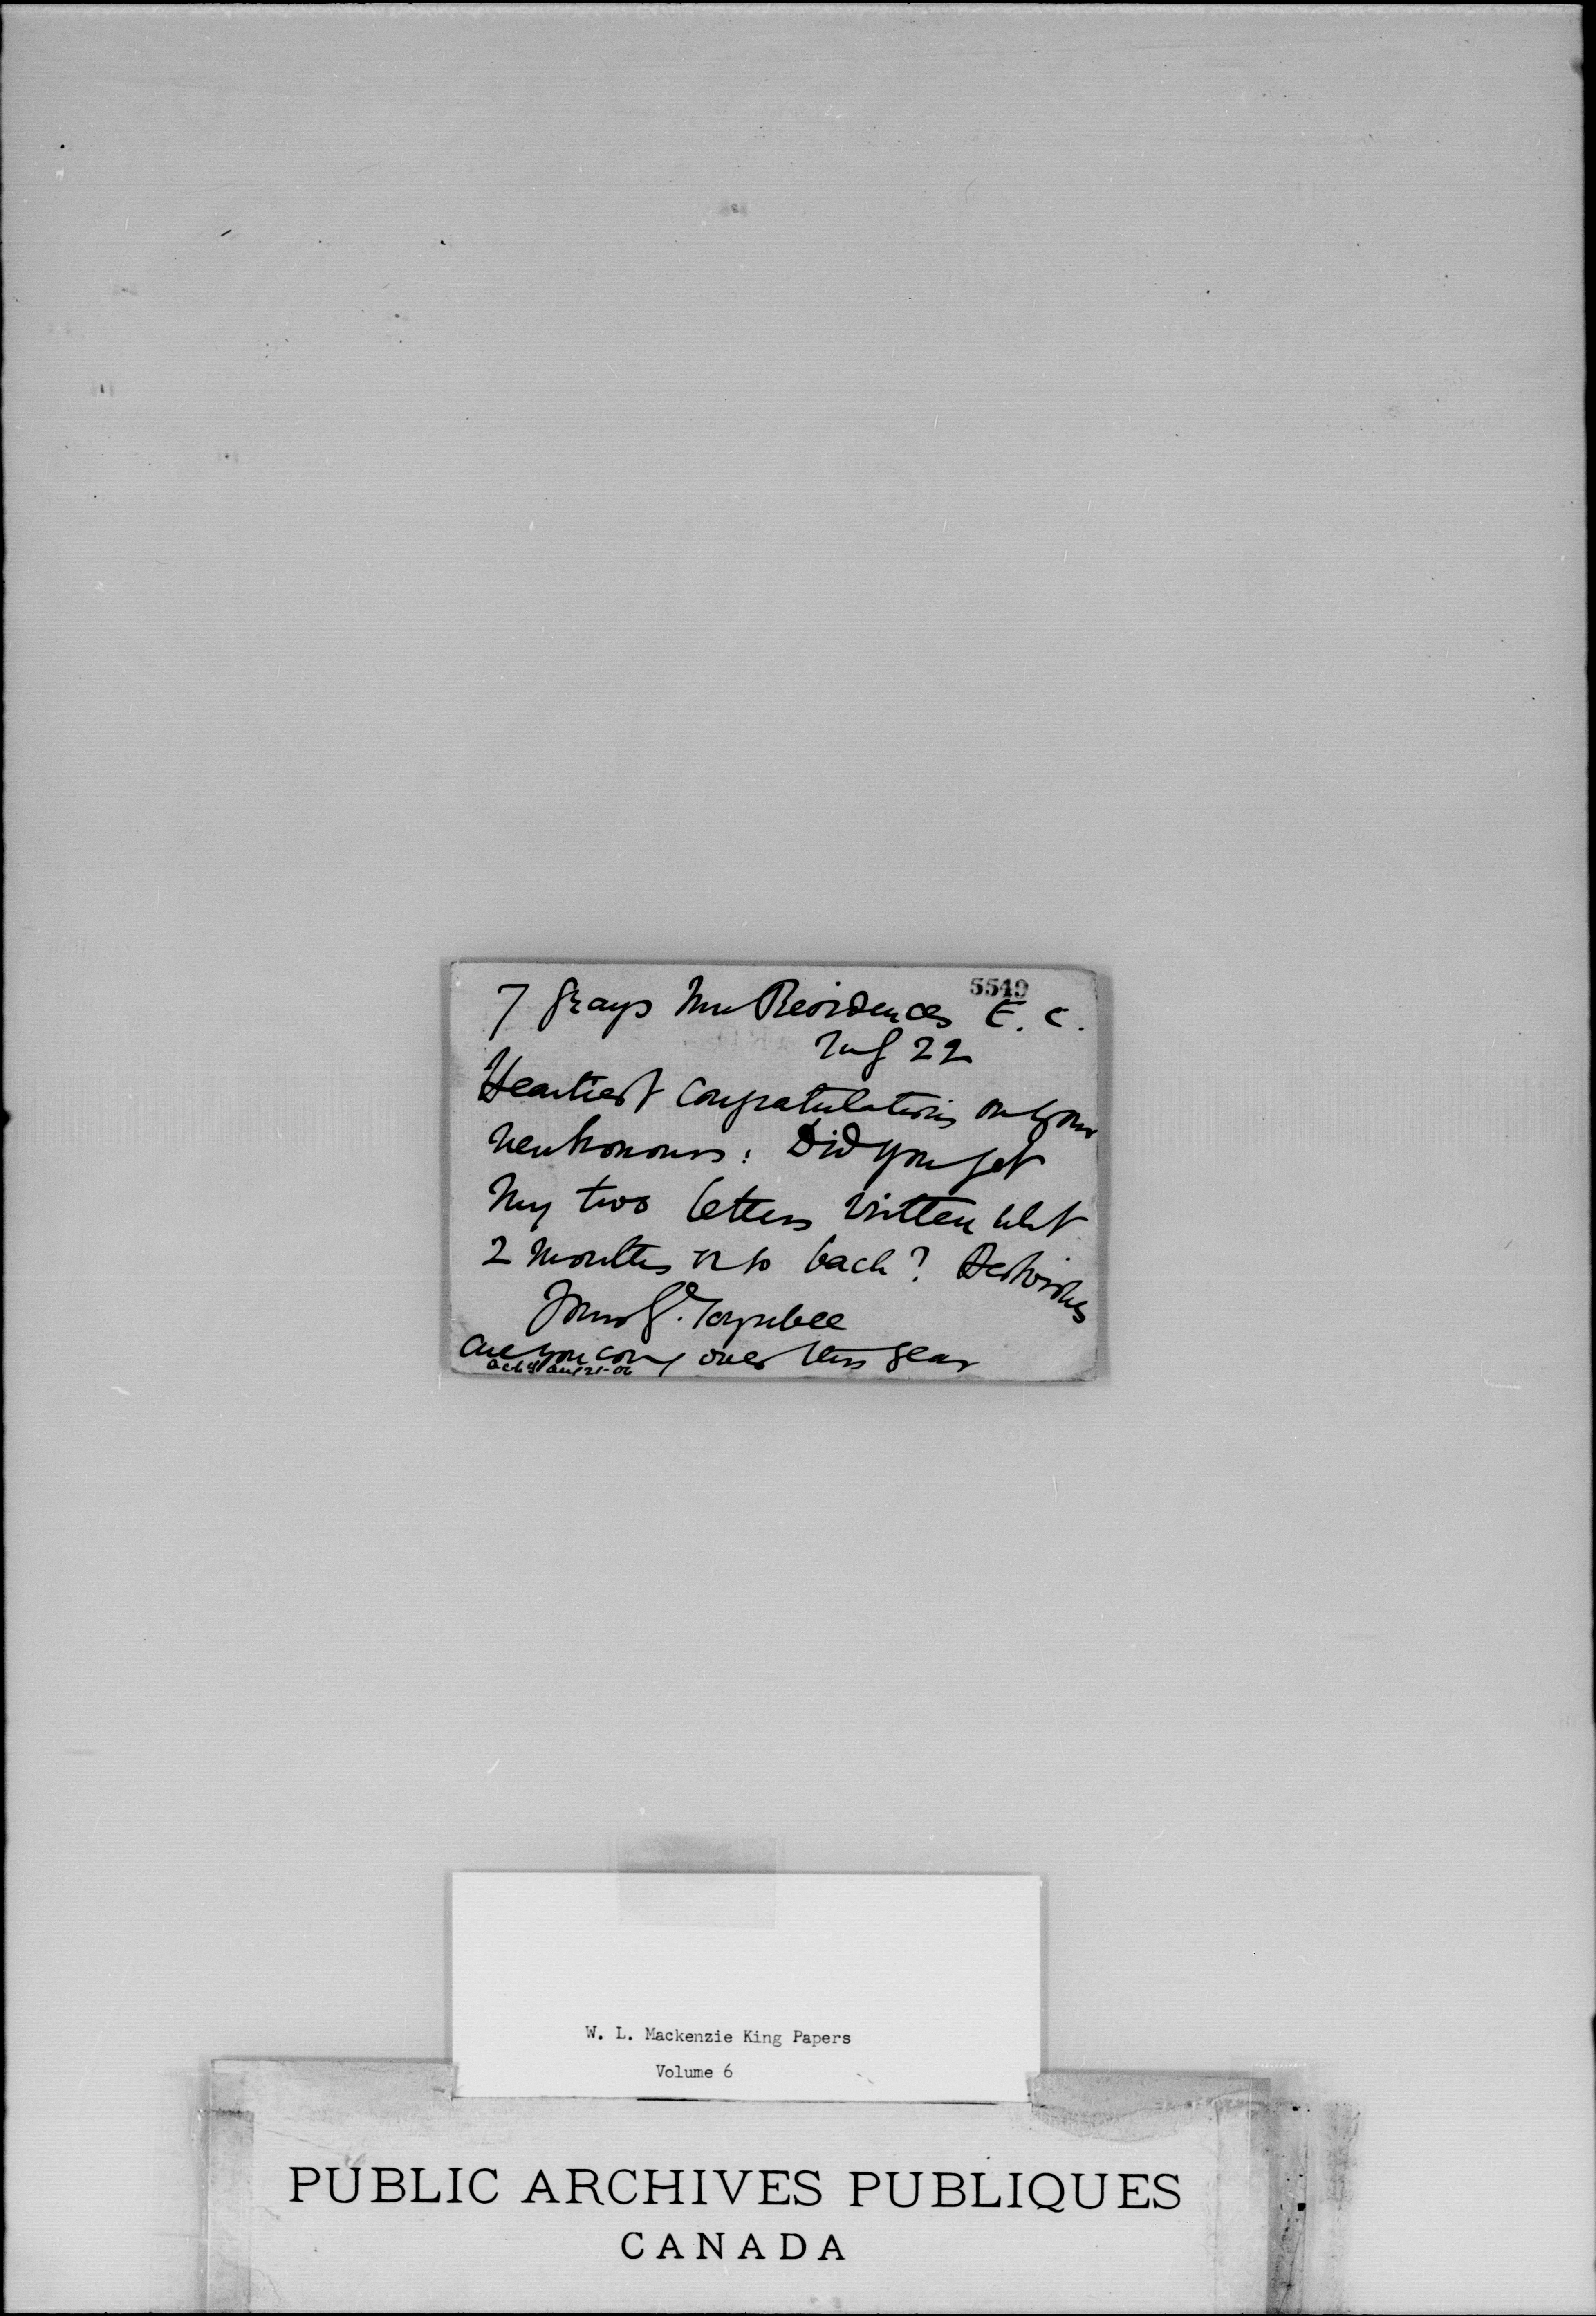 5549
7 Grays Inn Residences E. C.
22
Heartiest congratulations on your
new honours: Did you get
My two letters written
2 months or so back? Best wishes
Toynbee
Are you coming over this year
ack'd Aug 21-06
W. L. Mackenzie King Papers
Volume 6
PUBLIC ARCHIVES PUBLIQUES
CANADA